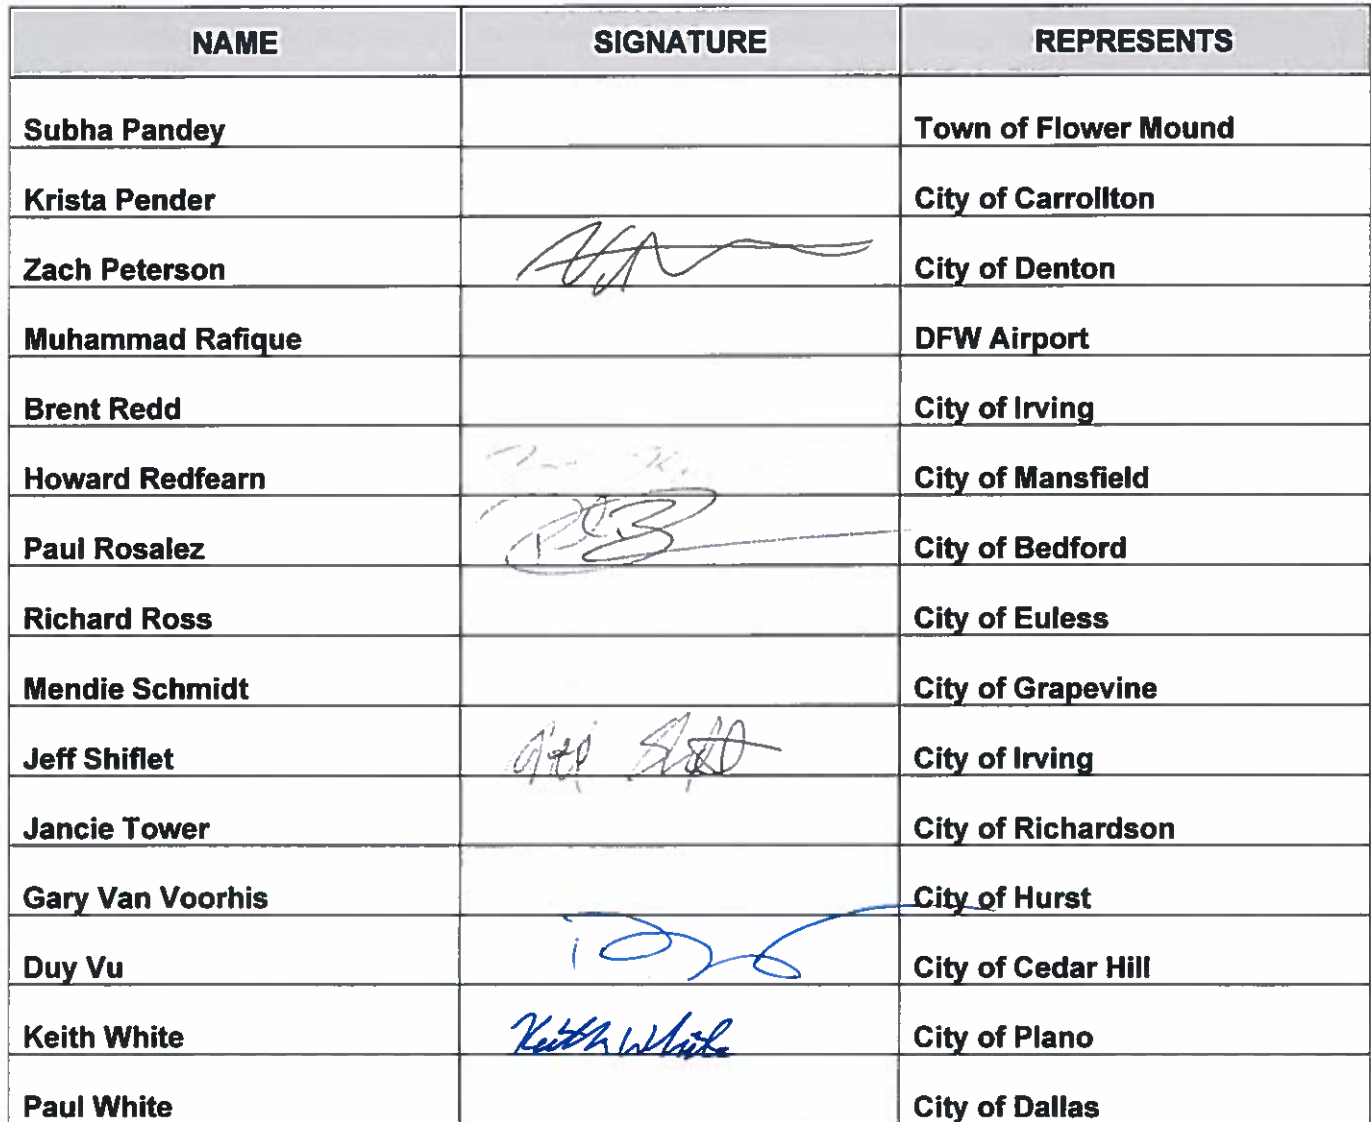 NAME SIGNATURE REPRESENTS
Subha Pandey Town of Flower Mound
Krista Pender City of Carrollton
Zach Peterson City of Denton
Muhammad Rafique DFW Airport
Brent Redd City of Irving
Howard Redfearn City of Mansfield
Paul Rosalez City of Bedford
Richard Ross City of Euless
Mendie Schmidt City of Grapevine
Jeff Shiflet City of Irving
Jancie Tower City of Richardson
Gary Van Voorhis City of Hurst
Duy Vu City of Cedar Hill
Keith White Keith White City of Plano
Paul White City of Dallas